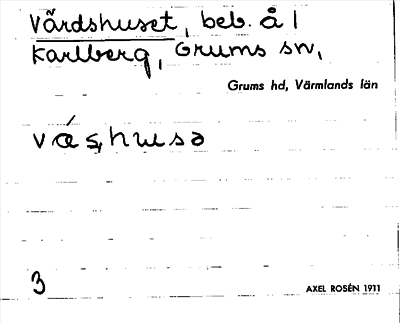 Vårdshuset, beb. å 1
Karlberg, Grums sn,
Grums hd, Värmlands län
vá̱ṣhusə
3
AXEL ROSÉN 1911